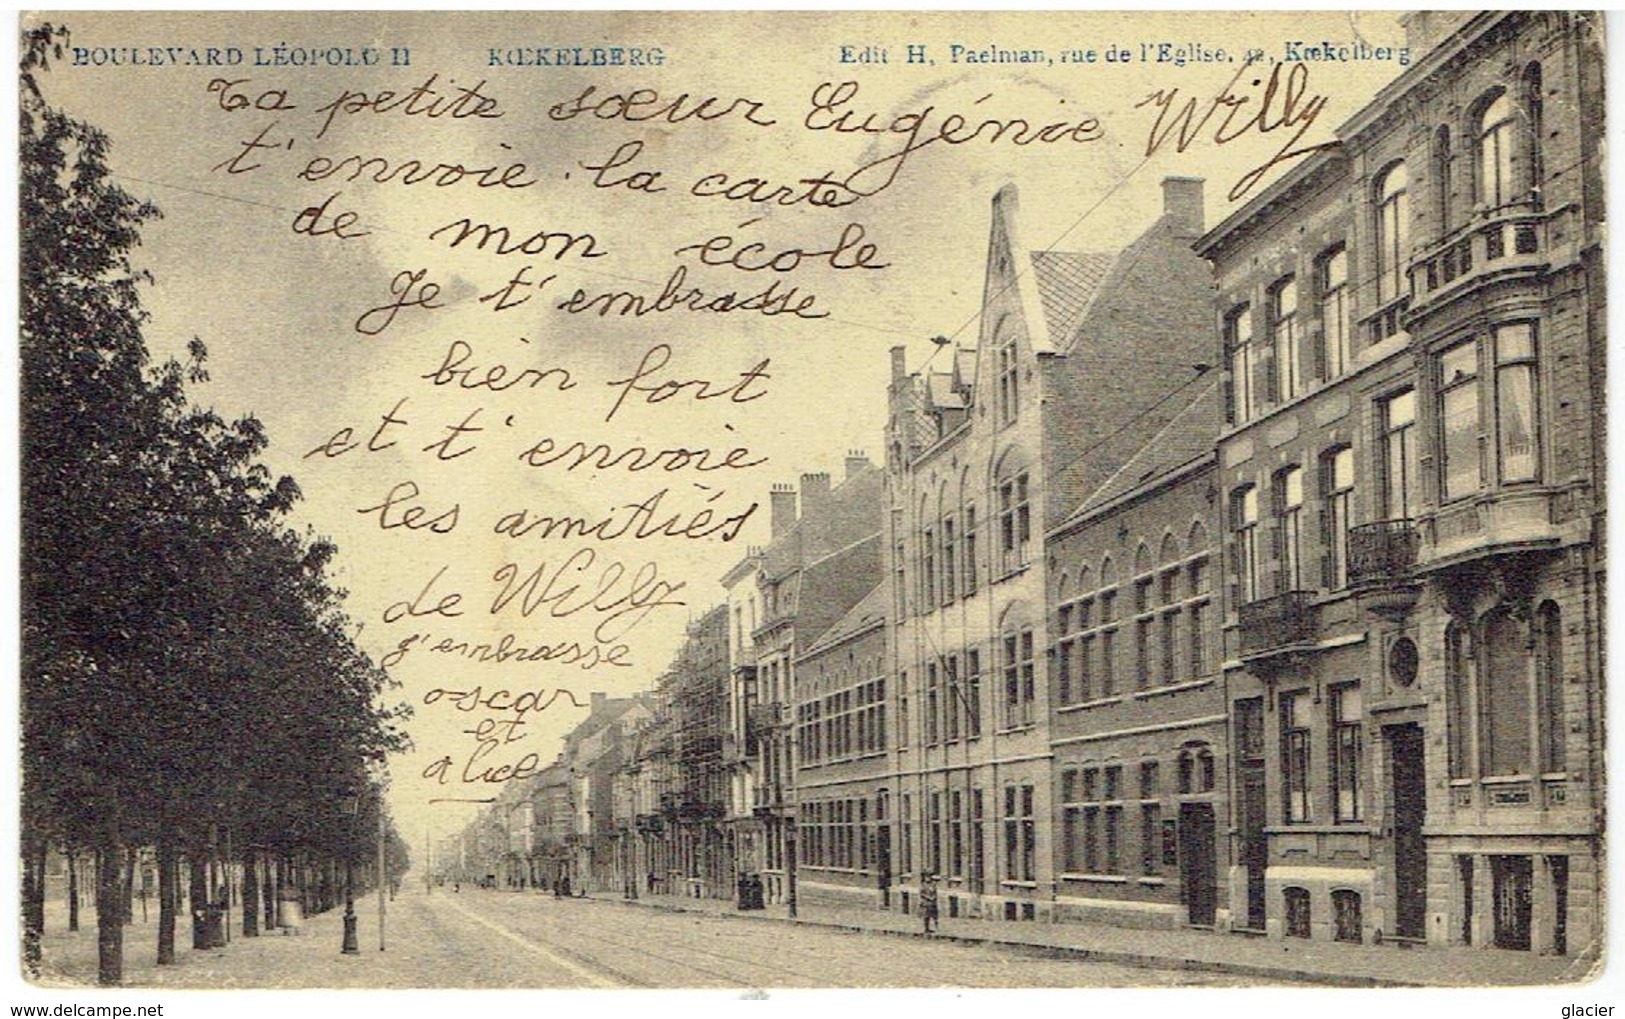 BOULEVARD LÉOPOLD II KŒKELBERG Edit H. Paelman, rue de l'Eglise, 42, Kœkelberg
Ta petite sœur Eugénie Willy
t'envoie la carte
de mon école
Je t'embrasse
bien fort
et t'envoie
les amitiés
de Willy
j'embrasse
oscar
et
alice
glacier
delcampe.net